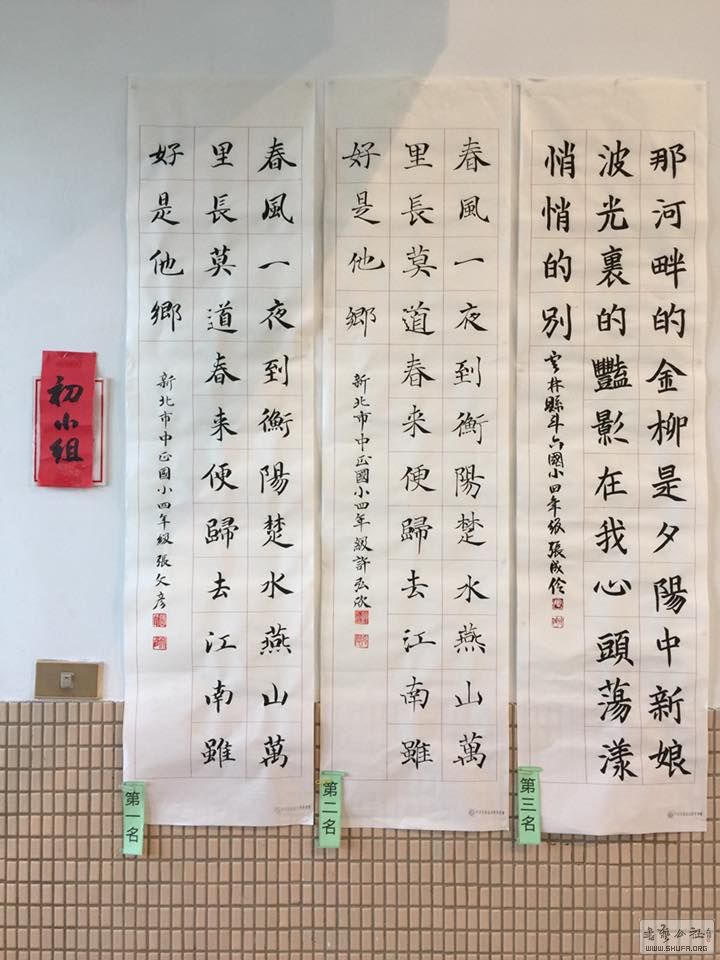 初小組
春風一夜到衡陽楚水燕山萬
里長莫道春来便歸去江南雖
好是他鄉
新北市中正國小四年級張文彥
第一名
春風一夜到衡陽楚水燕山萬
里長莫道春来便歸去江南雖
好是他鄉
新北市中正國小四年級許欣
第二名
那河畔的金柳是夕陽中新娘
波光裏的豔影在我心頭蕩漾
悄悄的別
雲林縣斗六國小四年級張成
第三名
WWW.SHUFA.ORG